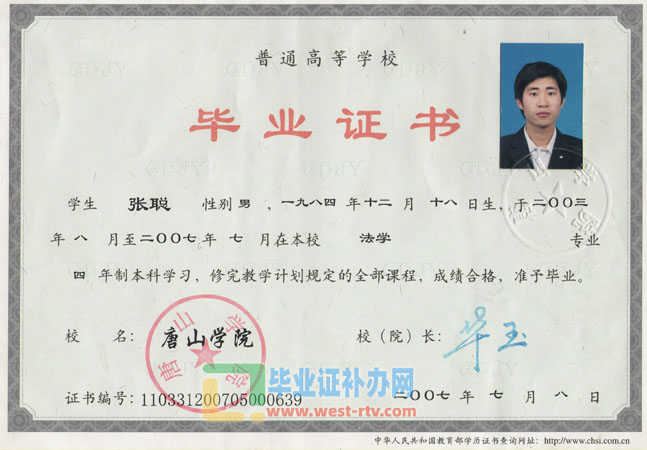 普通高等学校
毕业证书
学生 张聪 性别 男 ，一九八四 年 十二 月 十八 日生，于二〇〇三
年 八 月至二〇〇七年 七 月在本校 法学 专业
四 年制本科学习，修完教学计划规定的全部课程，成绩合格，准予毕业。
校 名： 唐山学院 校（院）长： 华玉
唐山学院
毕业证补办网
www.west-rtv.com
证书编号：110331200705000639 二〇〇七 年 七 月 八 日
中华人民共和国教育部学历证书查询网址：http://www.chsi.com.cn